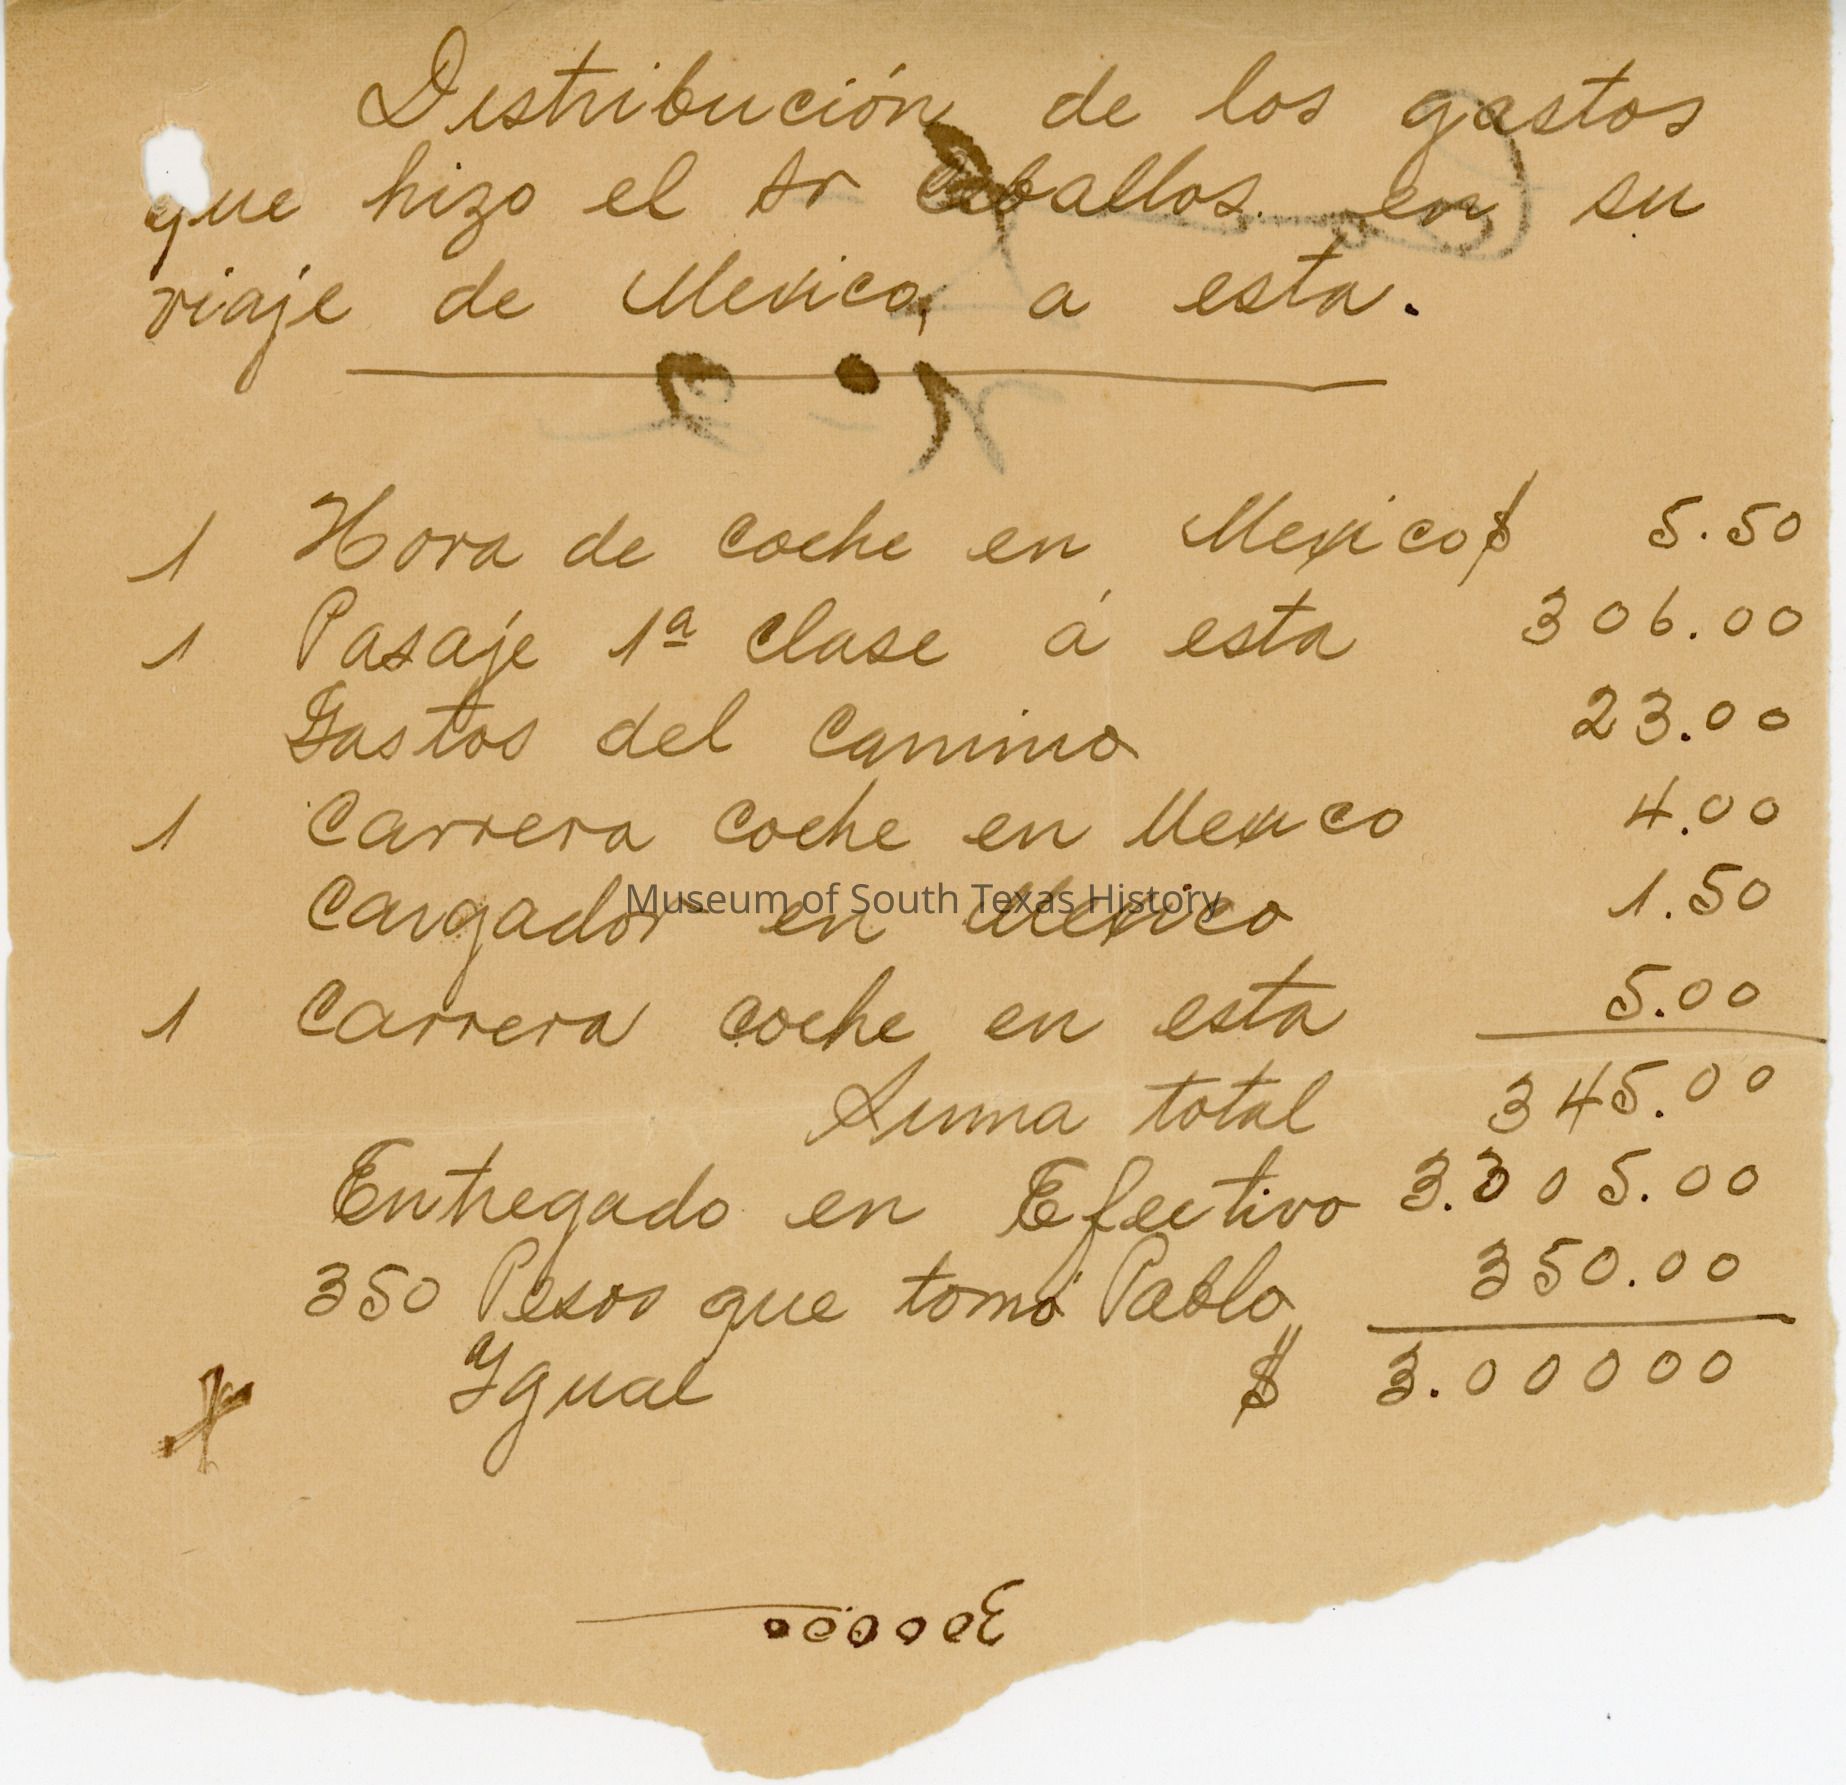 Distribución de los gastos
que hizo el Sr Ceballos en su
viaje de Mexico, a esta.
1 Hora de coche en Mexico $ 5.50
1 Pasaje 1ª clase á esta 306.00
Gastos del Camino 23.00
1 Carrera coche en Mexico 4.00
Cargador en Mexico 1.50
Museum of South Texas History
1 Carrera coche en esta 5.00
Suma total 345.00
Entregado en Efectivo 3.305.00
350 Pesos que tomó Pablo 350.00
Igual $ 3.00000